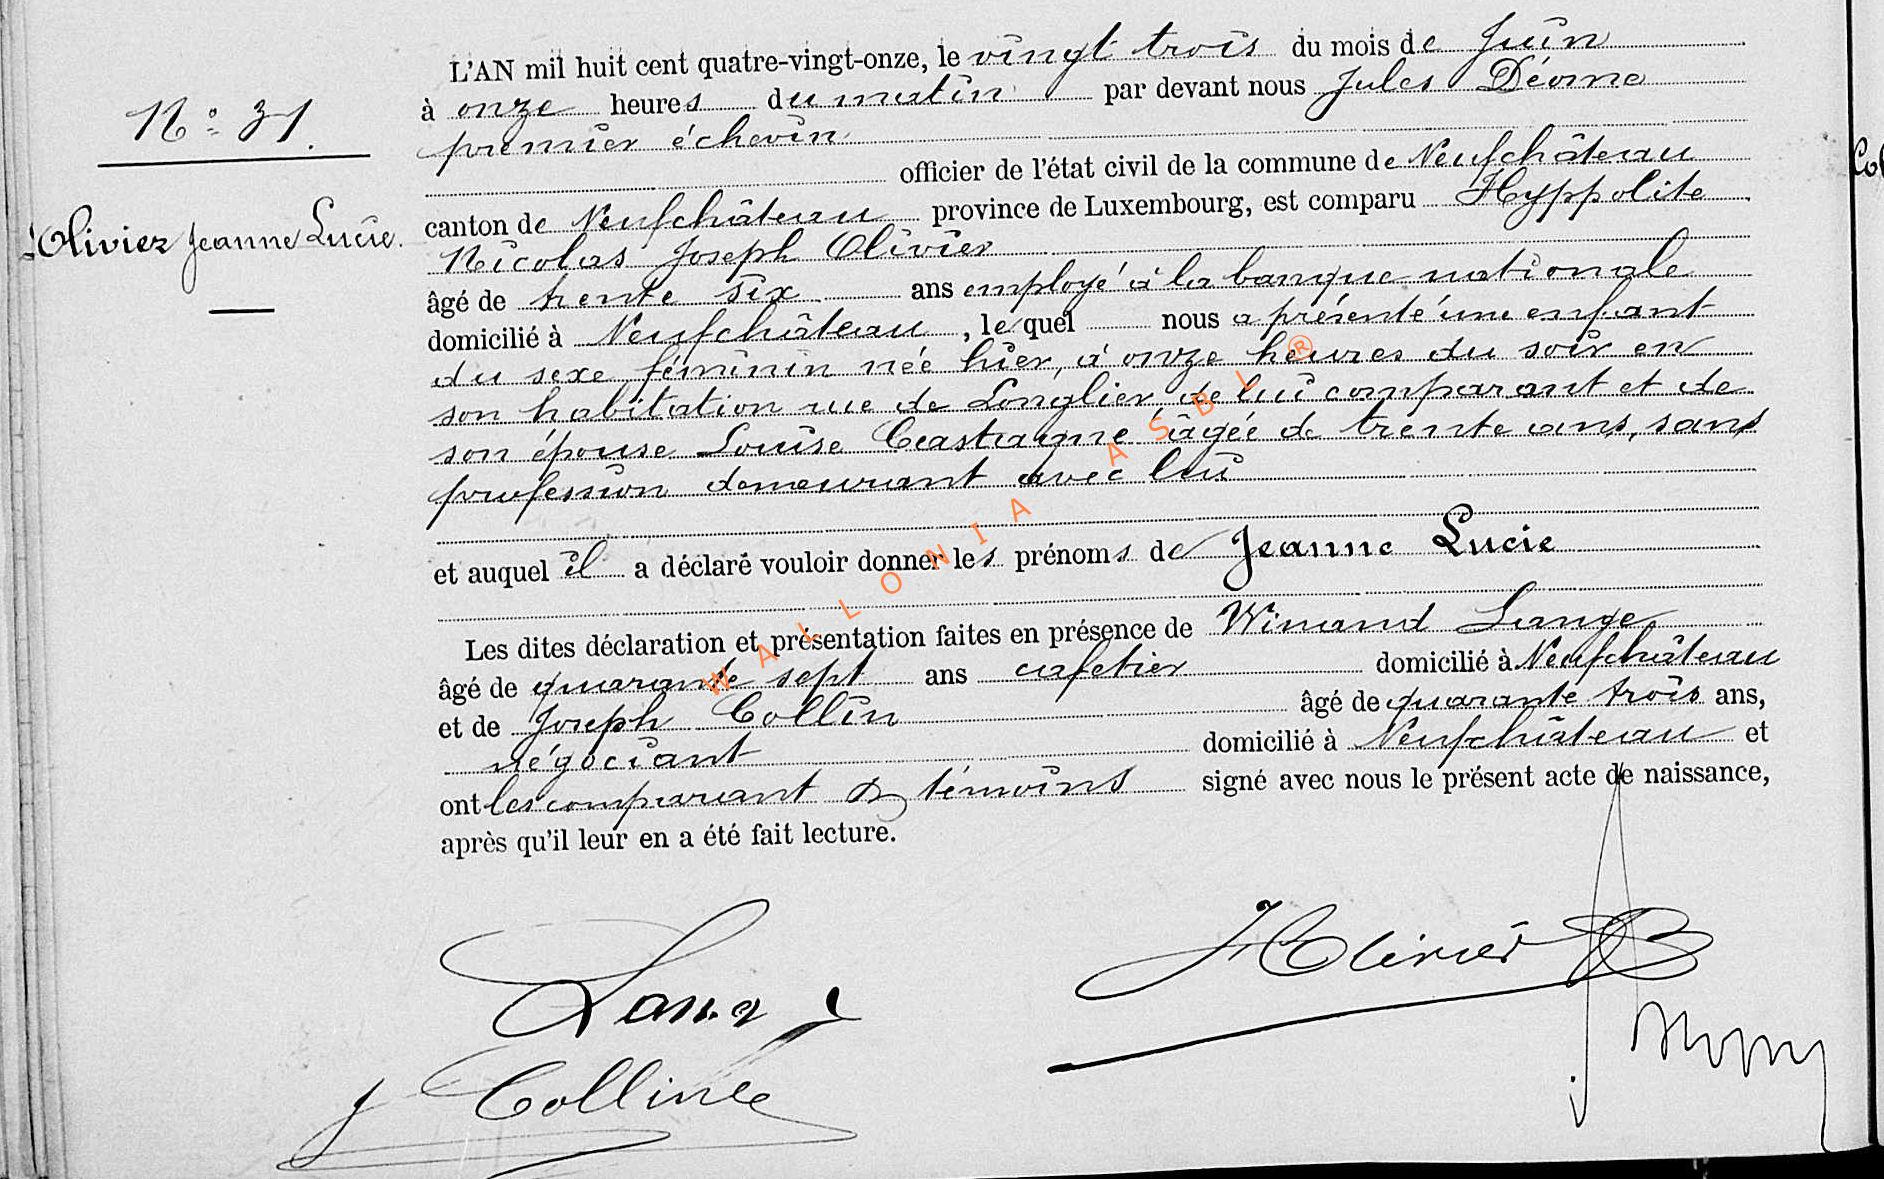 L'AN mil huit cent quatre-vingt-onze, le vingt trois du mois de Juin
à onze heures du matin par devant nous Jules Déome
premier échevin
officier de l'état civil de la commune de Neufchâteau
canton de Neufchâteau province de Luxembourg, est comparu Hyppolite
Nicolas Joseph Olivier
âgé de trente six ans employé à la banque nationale
domicilié à Neufchâteau, lequel nous a présenté une enfant
du sexe féminin née hier, à onze heures du soir en
son habitation rue de Longlier, de lui comparant et de
son épouse Louise Castaigne, âgée de trente ans, sans
profession demeurant avec lui
et auquel il a déclaré vouloir donner les prénoms de Jeanne Lucie
Les dites déclaration et présentation faites en présence de Winand Lange
âgé de quarante sept ans cafetier domicilié à Neufchâteau
et de Joseph Collin âgé de quarante trois ans,
négociant domicilié à Neufchâteau et
ont les comparant & témoins signé avec nous le présent acte de naissance,
après qu'il leur en a été fait lecture.
N° 31.
Olivier Jeanne Lucie.
Lange
HOlivier
J Collin
WALLONIA ASBL ®
Col